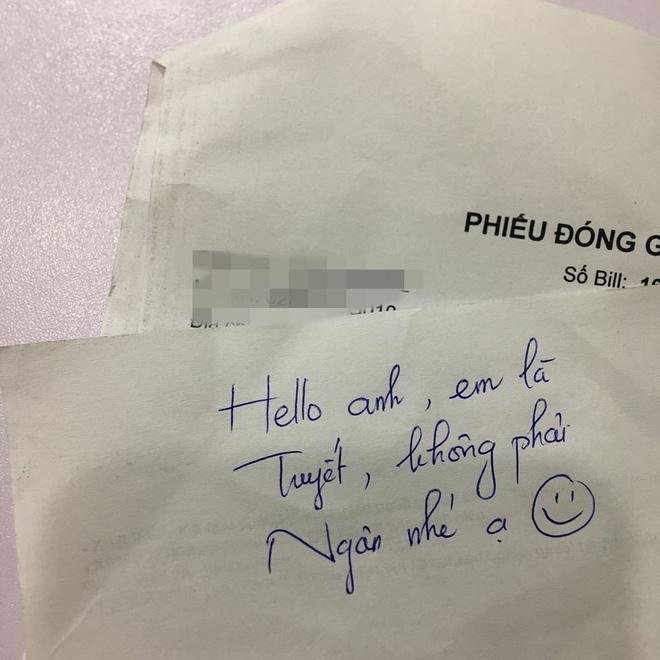 PHIẾU ĐÓNG G
Số Bill:
Hello anh, em là
Tuyết, không phải
Ngân nhé ạ